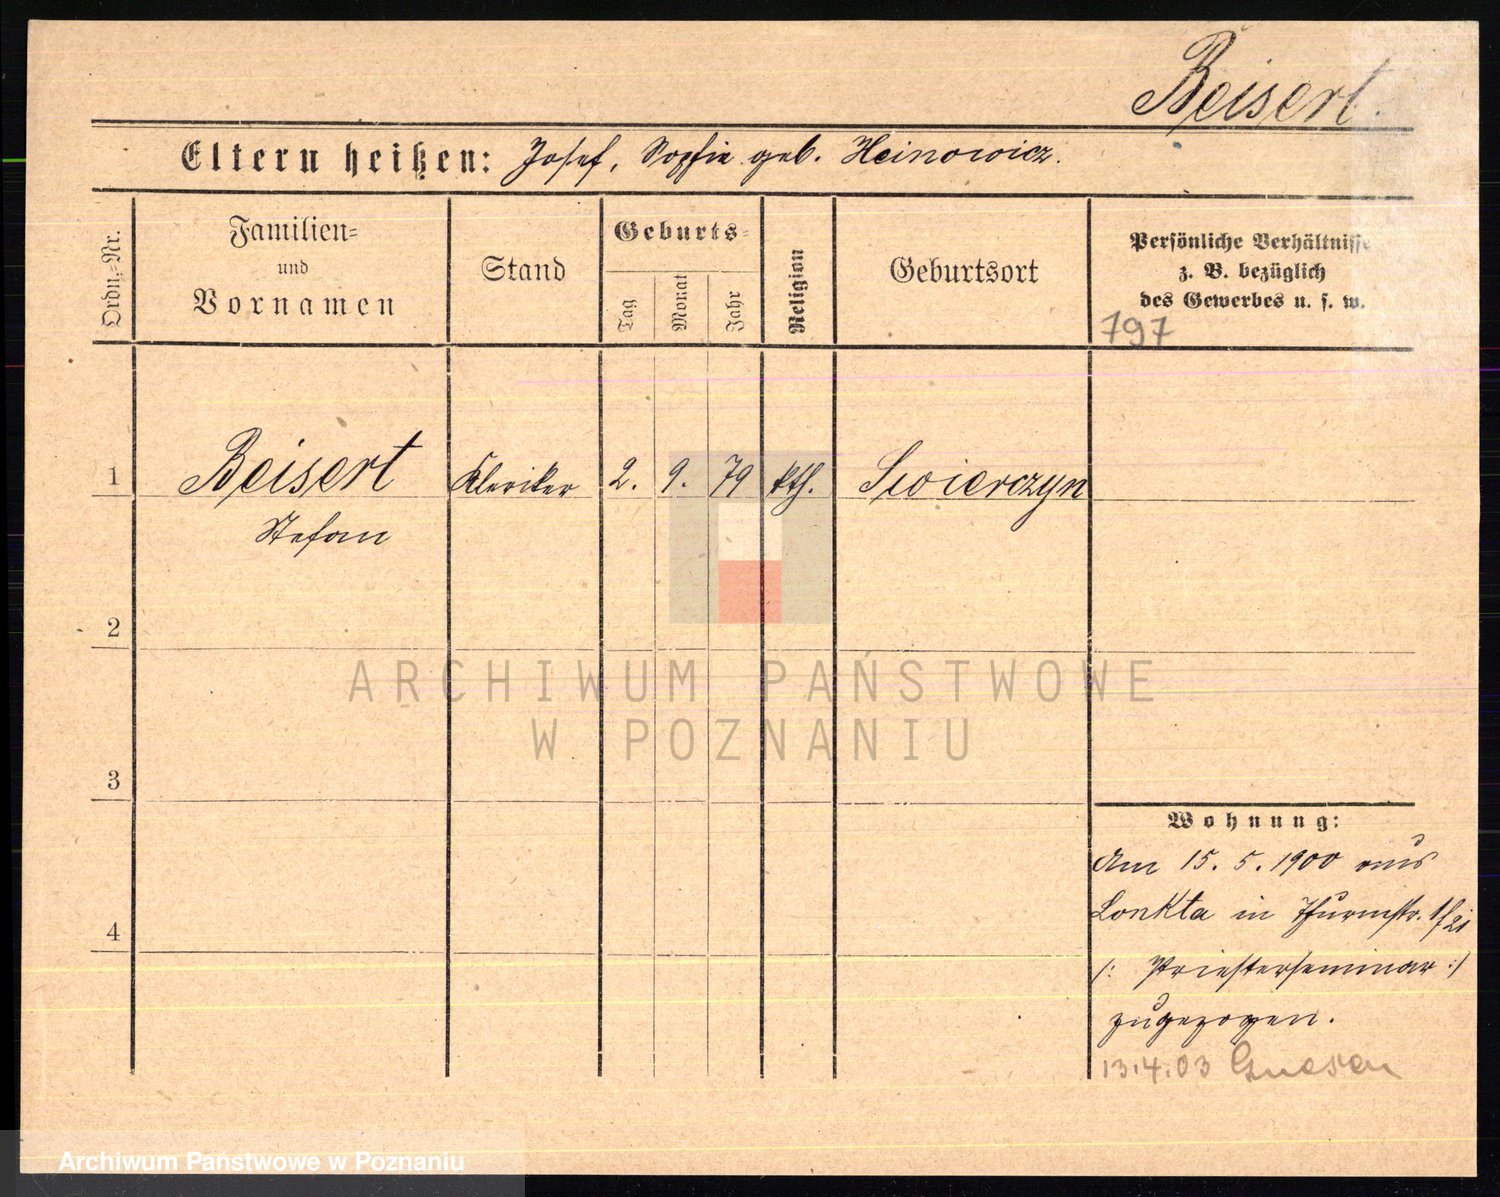 Beisert.
Eltern heißen: Josef, Sophie geb. Heinowicz.
Ordn.=Nr.
Familien=
und
Vornamen
Stand
Geburts=
Tag
Monat
Jahr
Religion
Geburtsort
Persönliche Verhältnisse
z. B. bezüglich
des Gewerbes u. s. w.
797
1
Beisert
Kleriker
2.
9.
79
kth.
Swierczyn
Stefan
2
ARCHIWUM PAŃSTWOWE
W POZNANIU
3
Wohnung:
Am 15. 5. 1900 aus
Lonkta in Thurmstr.
4
/: Priesterseminar :/
zugezogen.
13.4.03 Gnesen
Archiwum Państwowe w Poznaniu